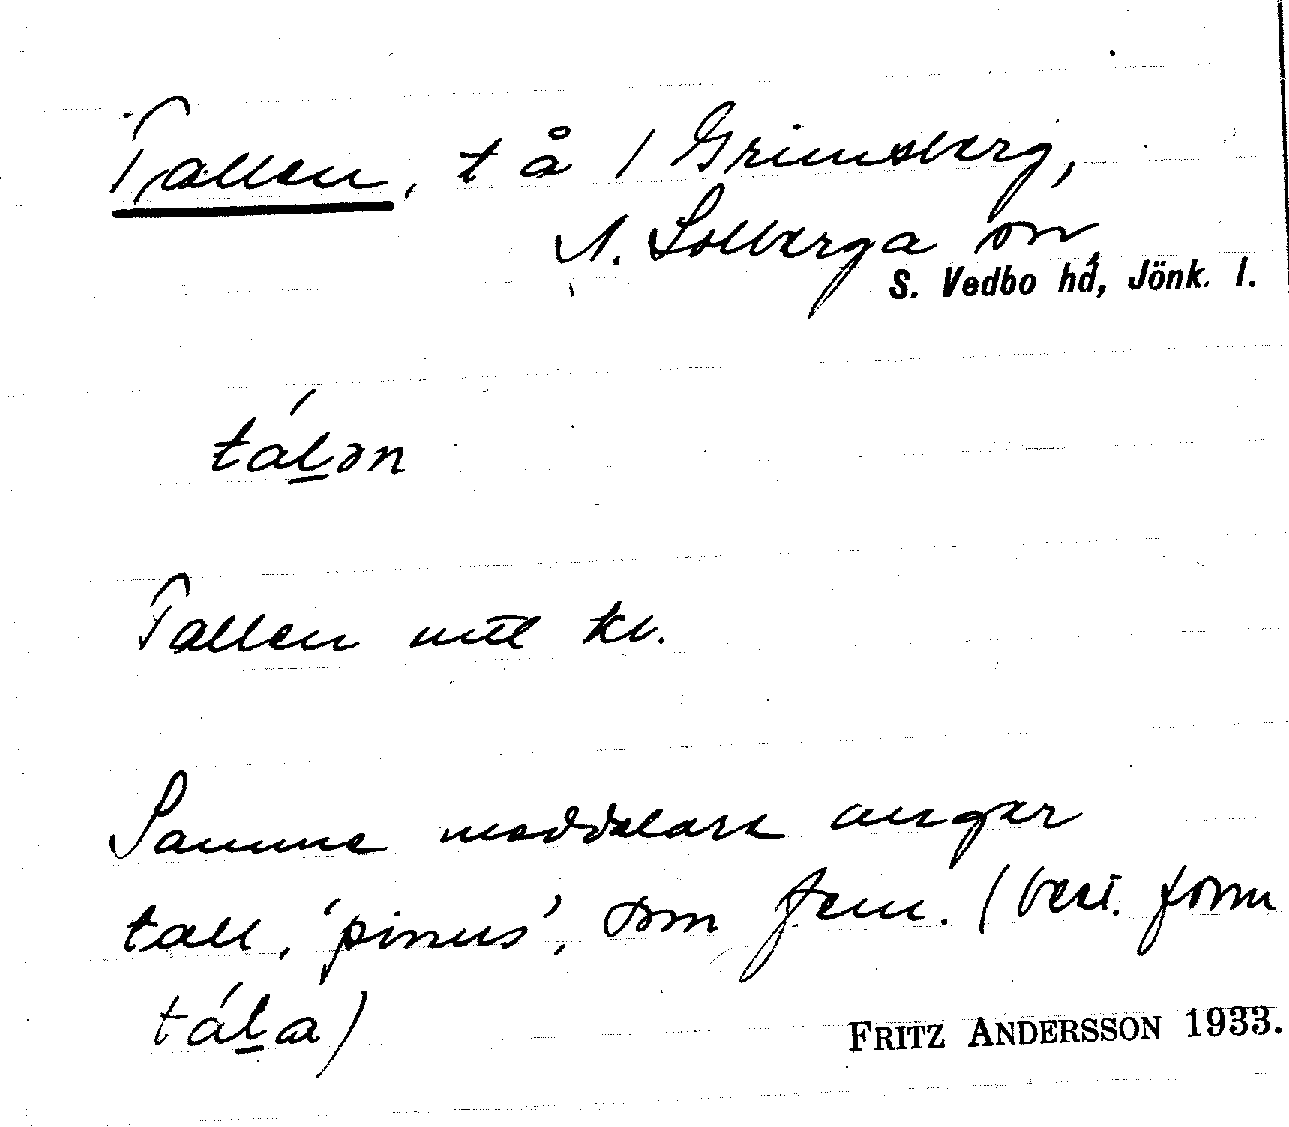 Tallen, t å / Grimsberg,
N. Solberga sn
S. Vedbo hd, Jönk. l.
tál̲ən
Tallen mtl kv.
Samme meddelare anger
tall, 'pinus', som fem. (best. form
tál̲a)
FRITZ ANDERSSON 1933.